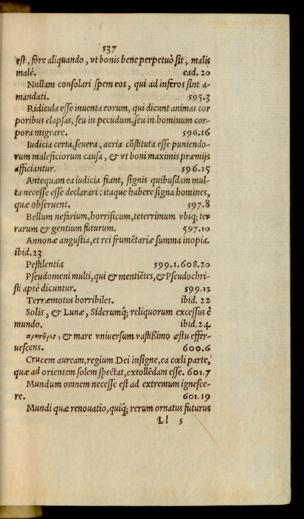 537
est, fore aliquando, vt bonis bene perpetuò sit, malis
malè. ead. 20
Nullam consolari spem eos, qui ad inferos sint a-
mandati. 595.3
Ridicula esse inuenta eorum, qui dicunt animas cor
poribus elapsas, seu in pecudum, seu in hominum cor-
pora migrare. 596.16
Iudicia certa, seuera, acria cōstituta esse puniendo-
rum maleficiorum causa, & vt boni maximis præmijs
afficiantur. 596.25
Antequam ea iudicia fiant, signis quibusdam mul-
ta necesse esse declarari: itaque habere signa homines,
quæ obseruent. 597.8
Bellum nefarium, horrificum, teterrimum vbiq; ter
rarum & gentium futurum. 597.10
Annonæ angustia, et rei frumētariæ summa inopia.
ibid. 23
Pestilentia 599.1.608.20
Pseudomeni multi, qui & mentiētes, & Pseudochri-
sti aptè dicuntur. 599.13
Terræmotus horribiles. ibid. 22
Solis, & Lunæ, Siderumq; reliquorum excessus è
mundo. ibid. 24.
& mare vniuersum vastissimo æstu effer-
uescens. 600.6
Crucem auream, regium Dei insigne, ea cœli parte,
quæ ad orientem solem spectat, extollēdam esse. 601.7
Mundum omnem necesse est ad extremum ignesce-
re. 601.19
Mundi quæ renouatio, quiq; rerum ornatus futurus
Ll 5